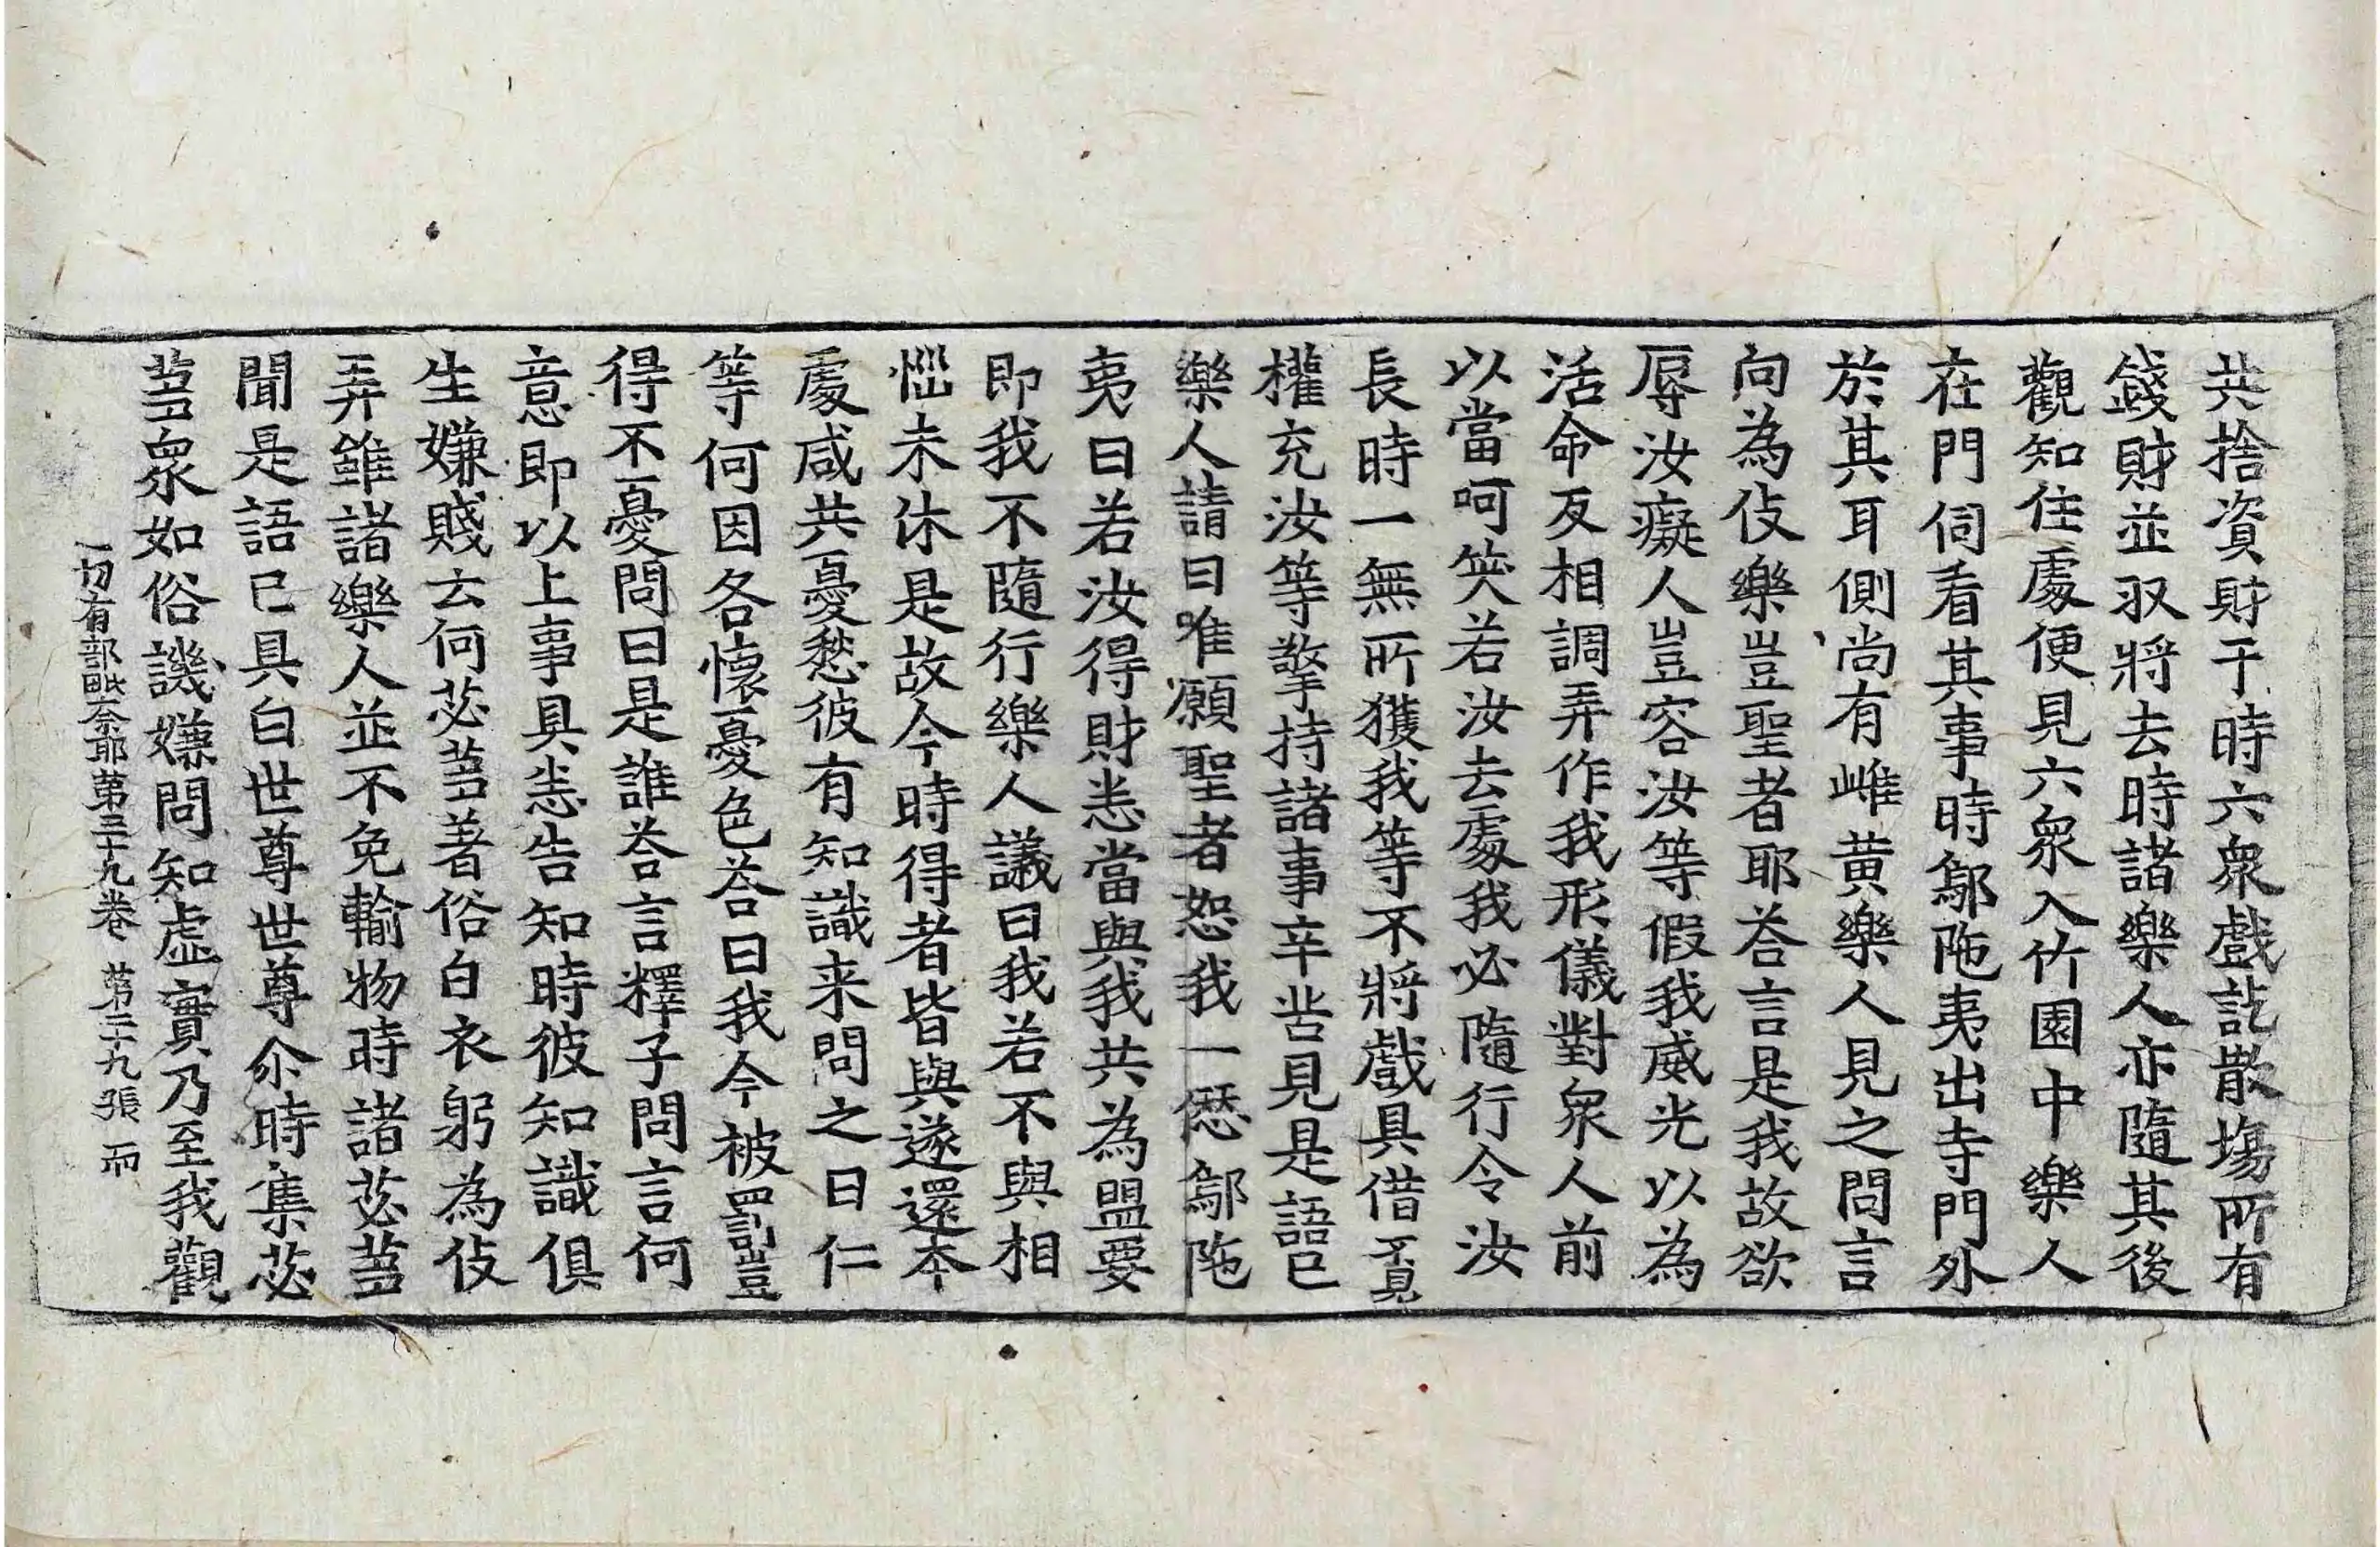 共捨資財于時六衆戲訖散場所有
錢財並収將去時諸樂人亦隨其後
觀知住處便見六衆入竹園中樂人
在門伺看其事時鄔陁夷出寺門外
於其耳側尚有雌黄樂人見之問言
向為伎樂豈聖者耶荅言是我故欲
辱汝癡人豈容汝等假我威光以為
活命反相調弄作我形儀對衆人前
以當呵笑若汝去處我必隨行令汝
長時一無所獲我等不將戲具借覔
權充汝等擎持諸事辛苦見是語已
樂人請曰唯願聖者恕我一愆鄔陁
夷曰若汝得財悉當與我共為盟要
即我不隨行樂人議曰我若不與相
惱未休是故今時得者皆與遂還本
處咸共憂愁彼有知識来問之曰仁
等何因各懷憂色荅曰我今被罰豈
得不憂問曰是誰荅言釋子問言何
意即以上事具悉告知時彼知識俱
生嫌賤云何苾芻著俗白衣躬為伎
弄雖諸樂人並不免輸物時諸苾芻
聞是語已具白世尊世尊尒時集苾
芻衆如俗譏嫌問知虛實乃至我觀
一切有部毗奈耶第三十九卷 第二十九張 而